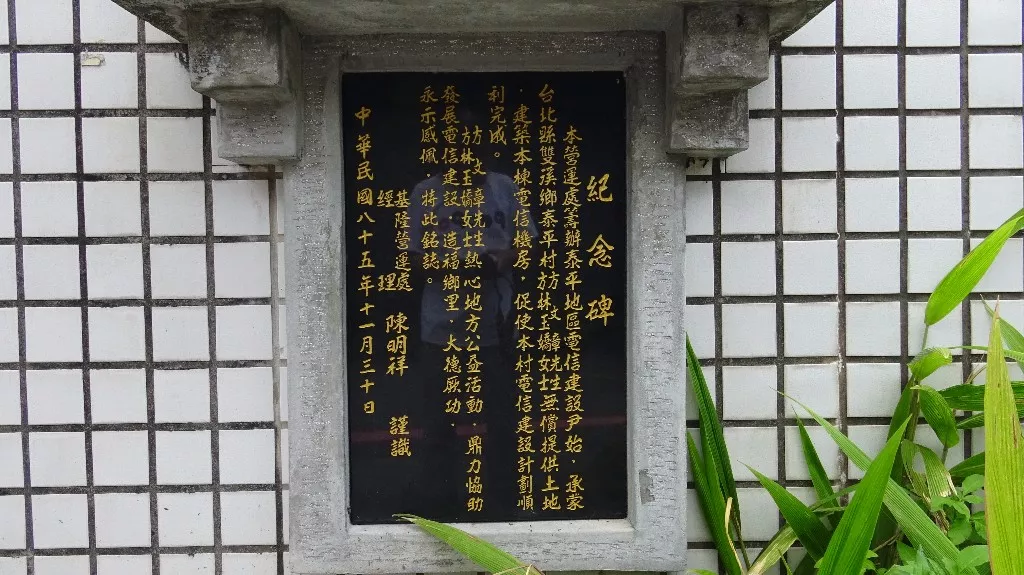 紀念碑
本營運處籌辦泰平地區電信建設尹始，承蒙
台北縣雙溪鄉泰平村方文章先生方林玉嬌女士無償提供土地
，建築本棟電信機房，促使本村電信建設計劃順
利完成。
方文章先生方林玉嬌女士熱心地方公益活動，鼎力協助
發展電信建設，造福鄉里，大德厥功，
永示感佩，特此銘誌。
基隆營運處
經理 陳明祥 謹識
中華民國八十五年十一月三十日